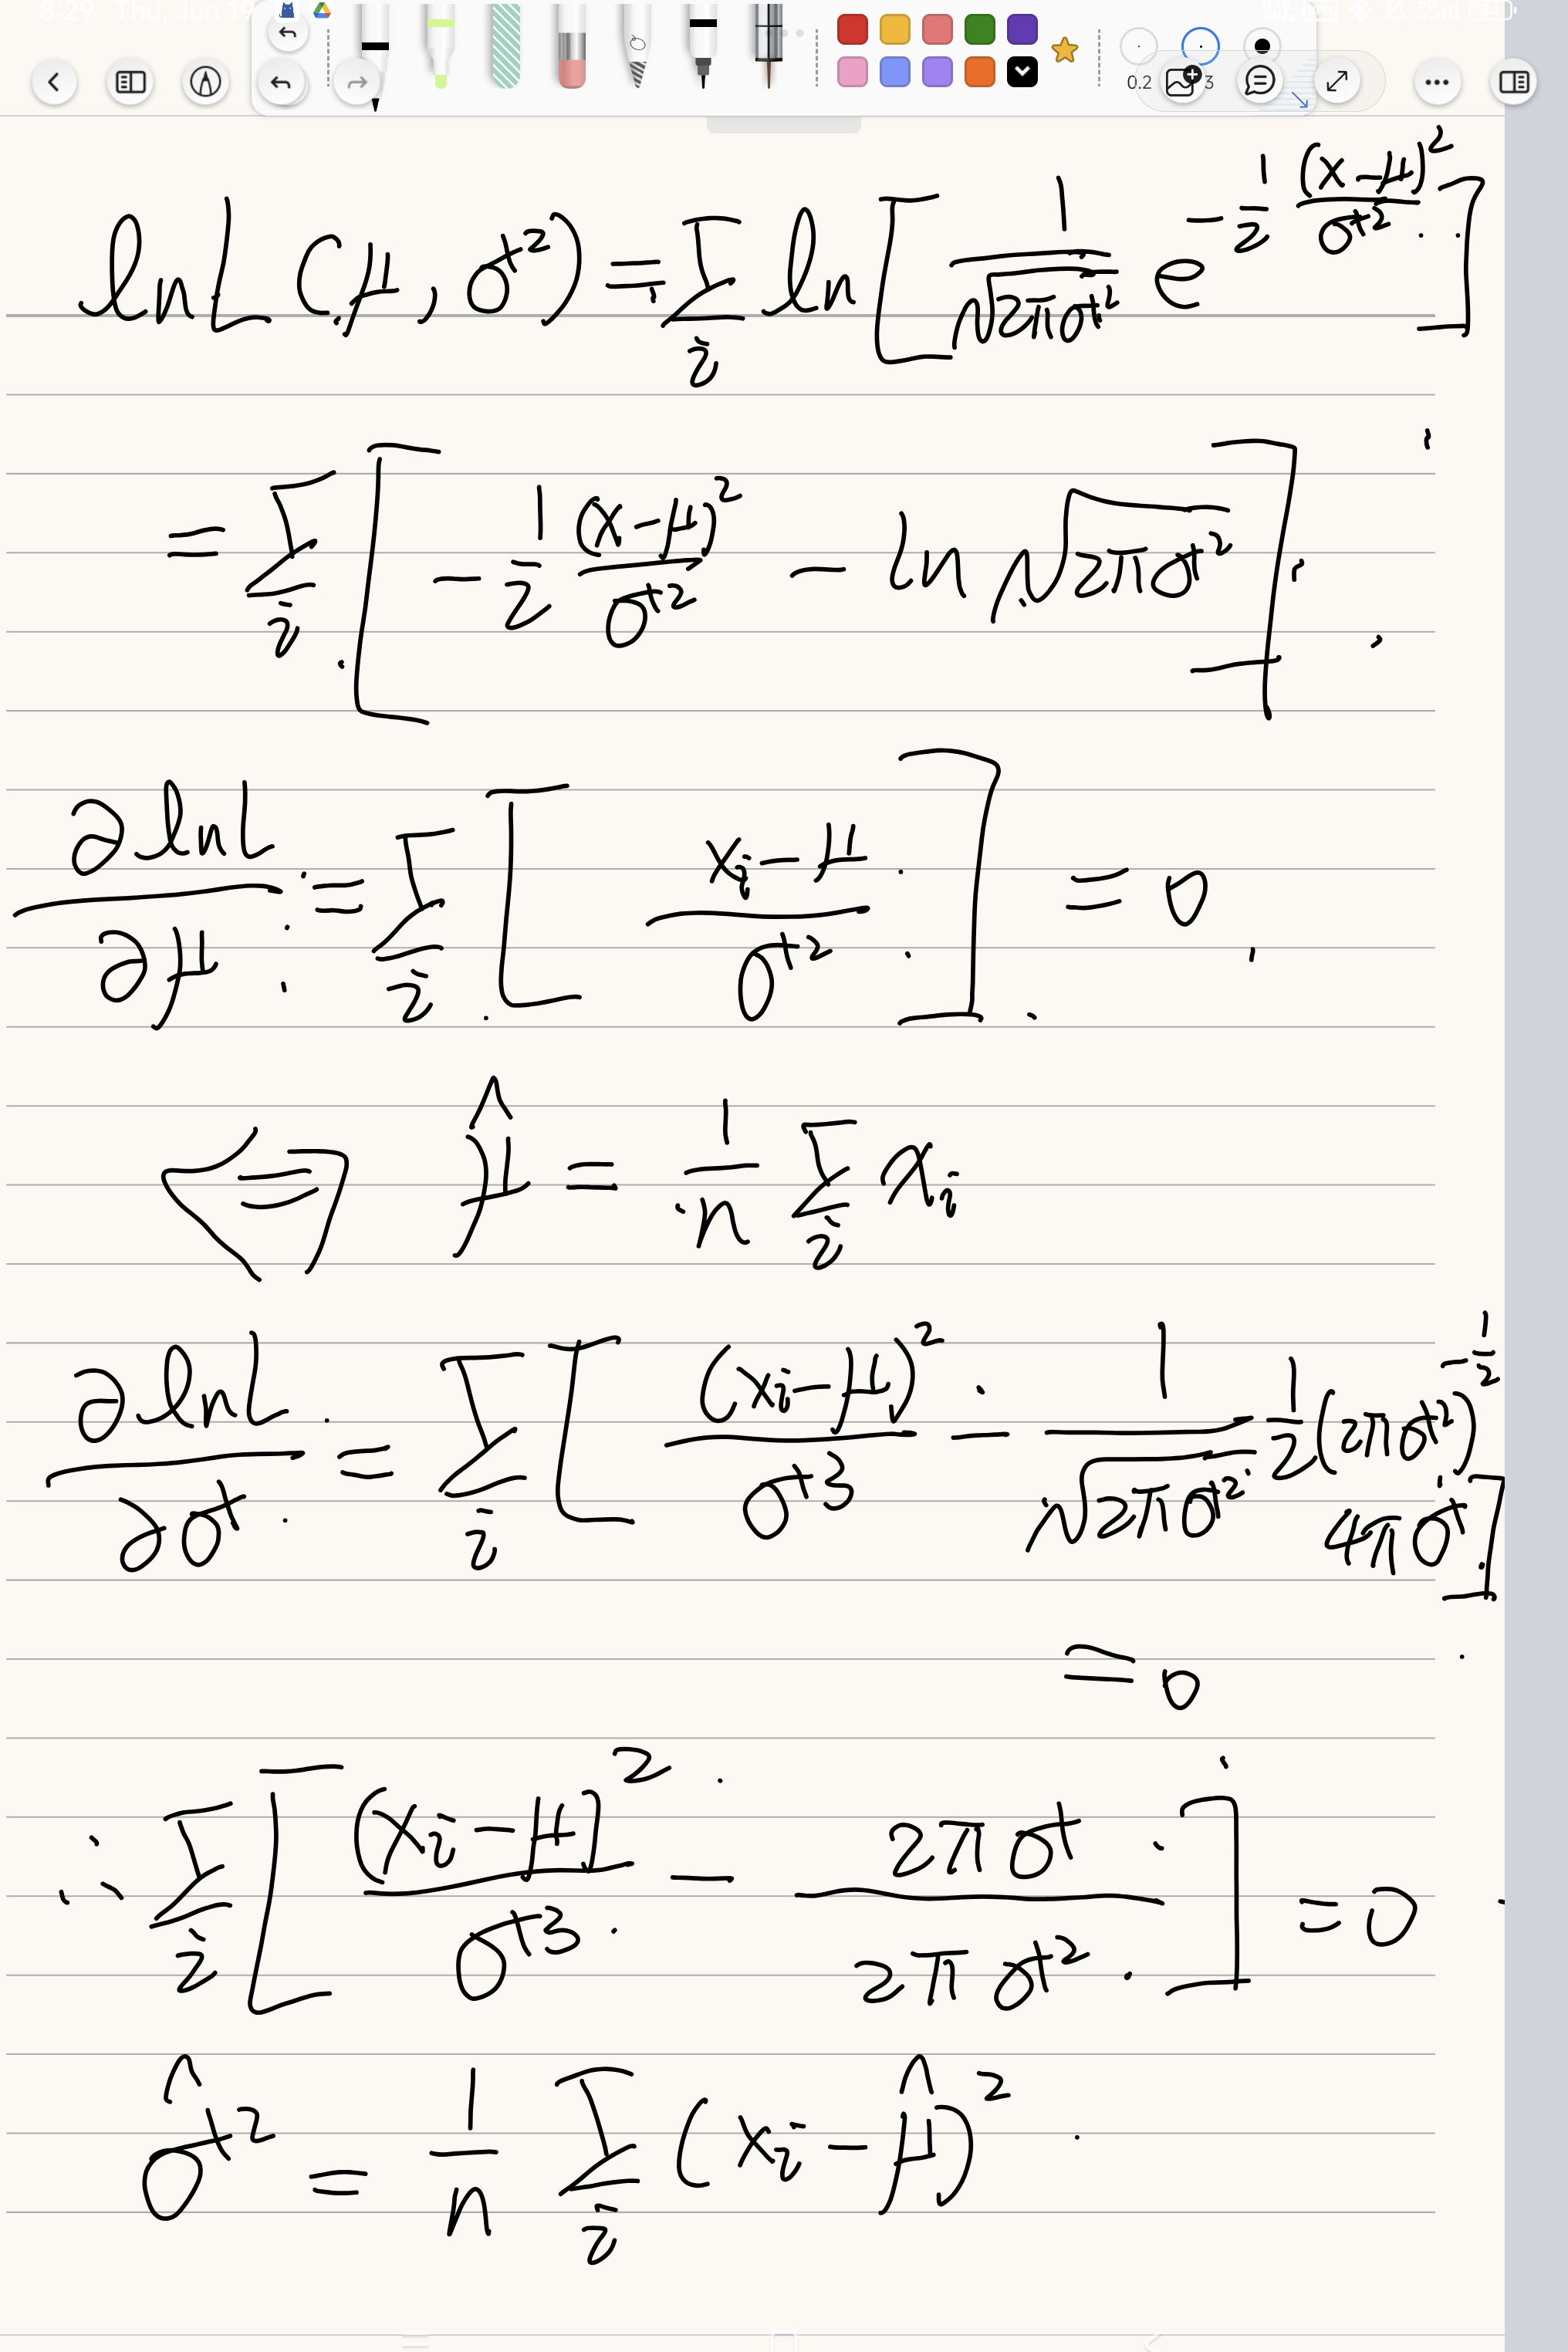 8:29 Thu, Jun 19
0.2 3
ln L (μ, σ²) = Σ_i ln [ 1/√(2πσ²) e^(-1/2 (x-μ)²/σ²) ]
= Σ_i [ -1/2 (x-μ)²/σ² - ln √(2πσ²) ]
∂ln L/∂μ = Σ_i [ (x_i-μ)/σ² ] = 0
⇔ μ̂ = 1/n Σ_i x_i
∂ln L/∂σ = Σ_i [ (x_i-μ)²/σ³ - 1/√(2πσ²) 1/2 (2πσ²)^(-1/2) 4πσ ]
= 0
∴ Σ_i [ (x_i-μ)²/σ³ - 2πσ/2πσ² ] = 0
σ̂² = 1/n Σ_i (x_i-μ̂)²